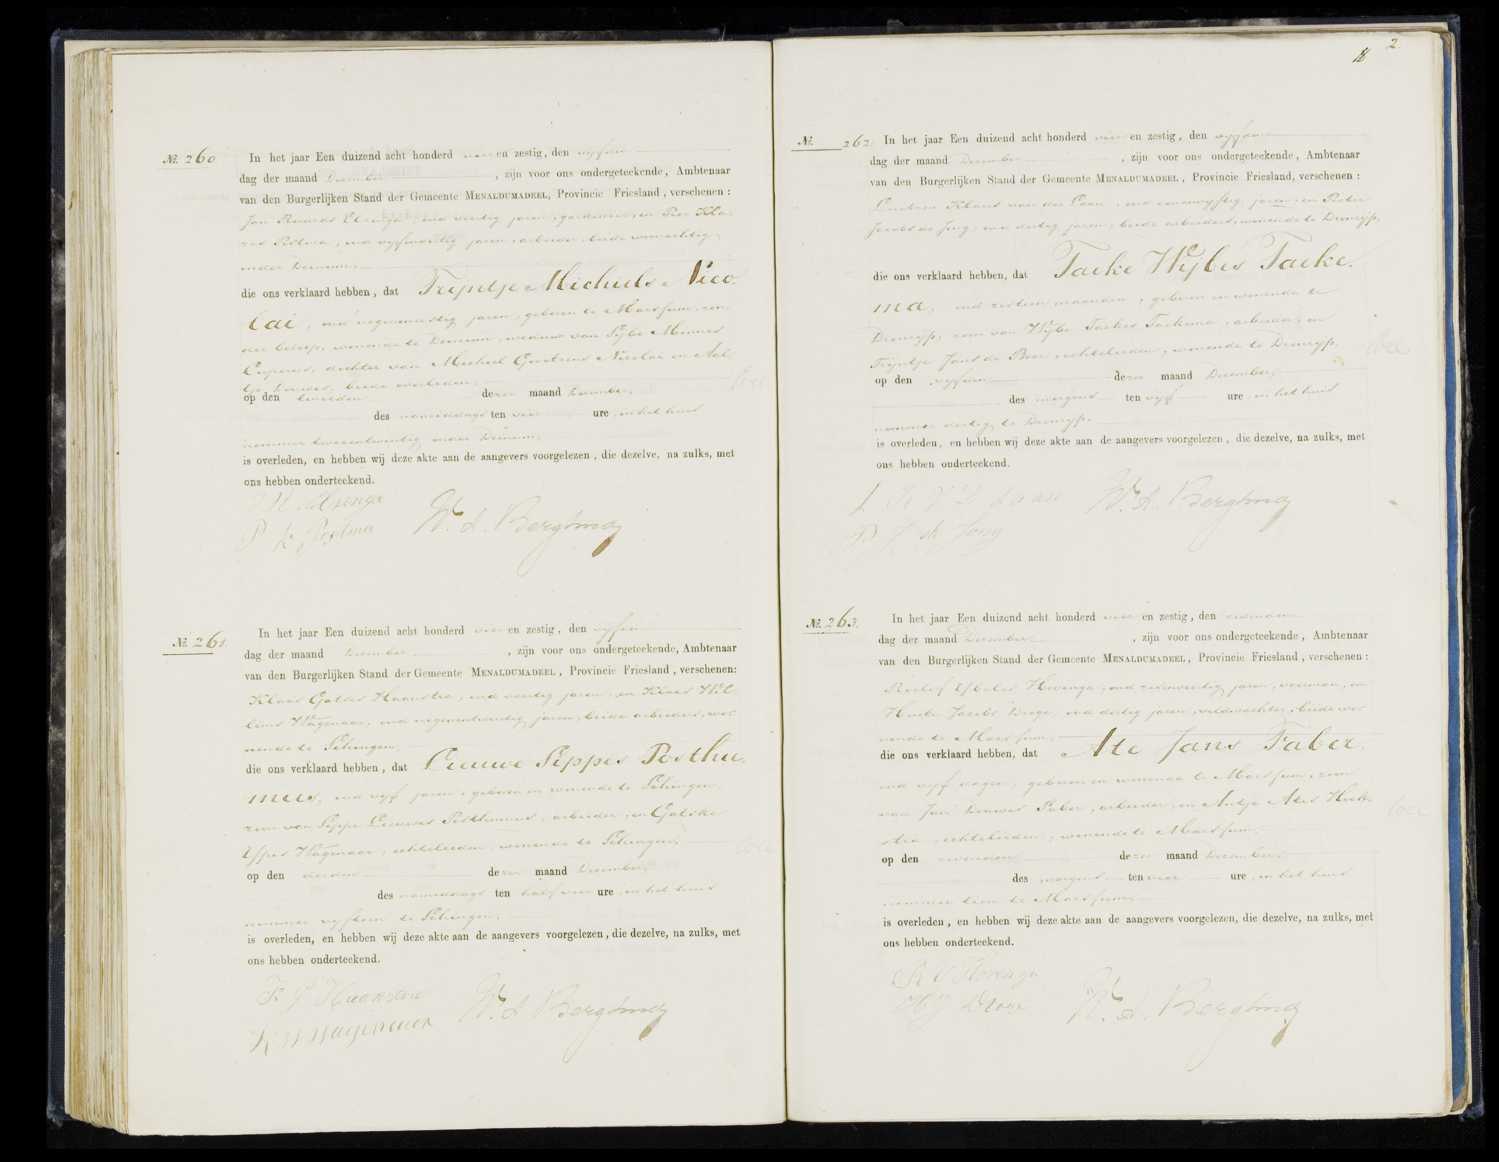 №. 260
In het jaar Een duizend acht honderd vier en zestig, den vyfden
dag der maand December, zijn voor ons ondergeteekende, Ambtenaar
van den Burgerlijken Stand der Gemeente MENALDUMADEEL, Provincie Friesland, verschenen:
jaren, gardenier, en Pier Kla-
zes Postma, oud jaren, arbeider, beide woonachtig
onder Deinum,
die ons verklaard hebben, dat Trijntje Michiels Nico
lai, oud jaren, geboren te Marssum, zon-
der beroep, wonende te Deinum, weduwe van Sijbe Minnes
Cuperus, dochter van Michiel Nicolai en Aal-
beide overleden,
op den tweeden dezer maand December,
des namiddags ten vier ure, in het huis
nommer tweeentwintig onder Deinum,
is overleden, en hebben wij deze akte aan de aangevers voorgelezen, die dezelve, na zulks, met
ons hebben onderteekend.
P K Postma W. A. Bergsma
№. 261.
In het jaar Een duizend acht honderd vier en zestig, den vyfden
dag der maand December, zijn voor ons ondergeteekende, Ambtenaar
van den Burgerlijken Stand der Gemeente MENALDUMADEEL, Provincie Friesland, verschenen:
Klaas Gatses Haanstra, oud veertig jaren, en Klaas Wil-
lems Wagenaar, oud negenentwintig jaren, beide arbeiders, wo-
nende te Schingen,
die ons verklaard hebben, dat Lieuwe Sippes Posthu-
mus, oud vyf jaren, geboren en wonende te Schingen,
zoon van Sippe Lieuwes Posthumus, arbeider, en Gatske
Wagenaar, echtelieden, wonende te Schingen,
op den derden dezer maand December,
des namiddags ten half vier ure, in het huis
nommer vyftien te Schingen,
is overleden, en hebben wij deze akte aan de aangevers voorgelezen, die dezelve, na zulks, met
ons hebben onderteekend.
K G Haanstra
K W Wagenaar W. A. Bergsma
2
№. 262.
In het jaar Een duizend acht honderd vier en zestig, den vyfden
dag der maand December, zijn voor ons ondergeteekende, Ambtenaar
van den Burgerlijken Stand der Gemeente MENALDUMADEEL, Provincie Friesland, verschenen:
Klazes van der Laan, oud eenenvyftig jaren, en Pieter
Jacobs de Jong, oud dertig jaren, beide arbeiders, wonende te Dronryp,
die ons verklaard hebben, dat Taeke Wijbes Taeke-
ma, oud zestien maanden, geboren en wonende te
Dronryp, zoon van Wybe Taekes Taekema, arbeider, en
Trijntje Jans de Boer, echtelieden, wonende te Dronryp,
op den vyfden dezer maand December,
des morgens ten vyf ure, in het huis
nommer veertig te Dronryp,
is overleden, en hebben wij deze akte aan de aangevers voorgelezen, die dezelve, na zulks, met
ons hebben onderteekend.
L K V D Laan W. A. Bergsma
P J de Jong
№. 263.
In het jaar Een duizend acht honderd vier en zestig, den zevenden
dag der maand December, zijn voor ons ondergeteekende, Ambtenaar
van den Burgerlijken Stand der Gemeente MENALDUMADEEL, Provincie Friesland, verschenen:
Roelof jaren, veerman, en
Jacobs oud dertig jaren, veldwachter, beide wo-
nende te Marssum,
die ons verklaard hebben, dat Ate Jans Faber,
oud vyf dagen, geboren en wonende te Marssum, zoon
van Jan Douwes Faber, arbeider, en Antje Ates Hoek-
stra, echtelieden, wonende te Marssum,
op den zevenden dezer maand December,
des morgens ten vier ure, in het huis
nommer tien te Marssum,
is overleden, en hebben wij deze akte aan de aangevers voorgelezen, die dezelve, na zulks, met
ons hebben onderteekend.
W. A. Bergsma